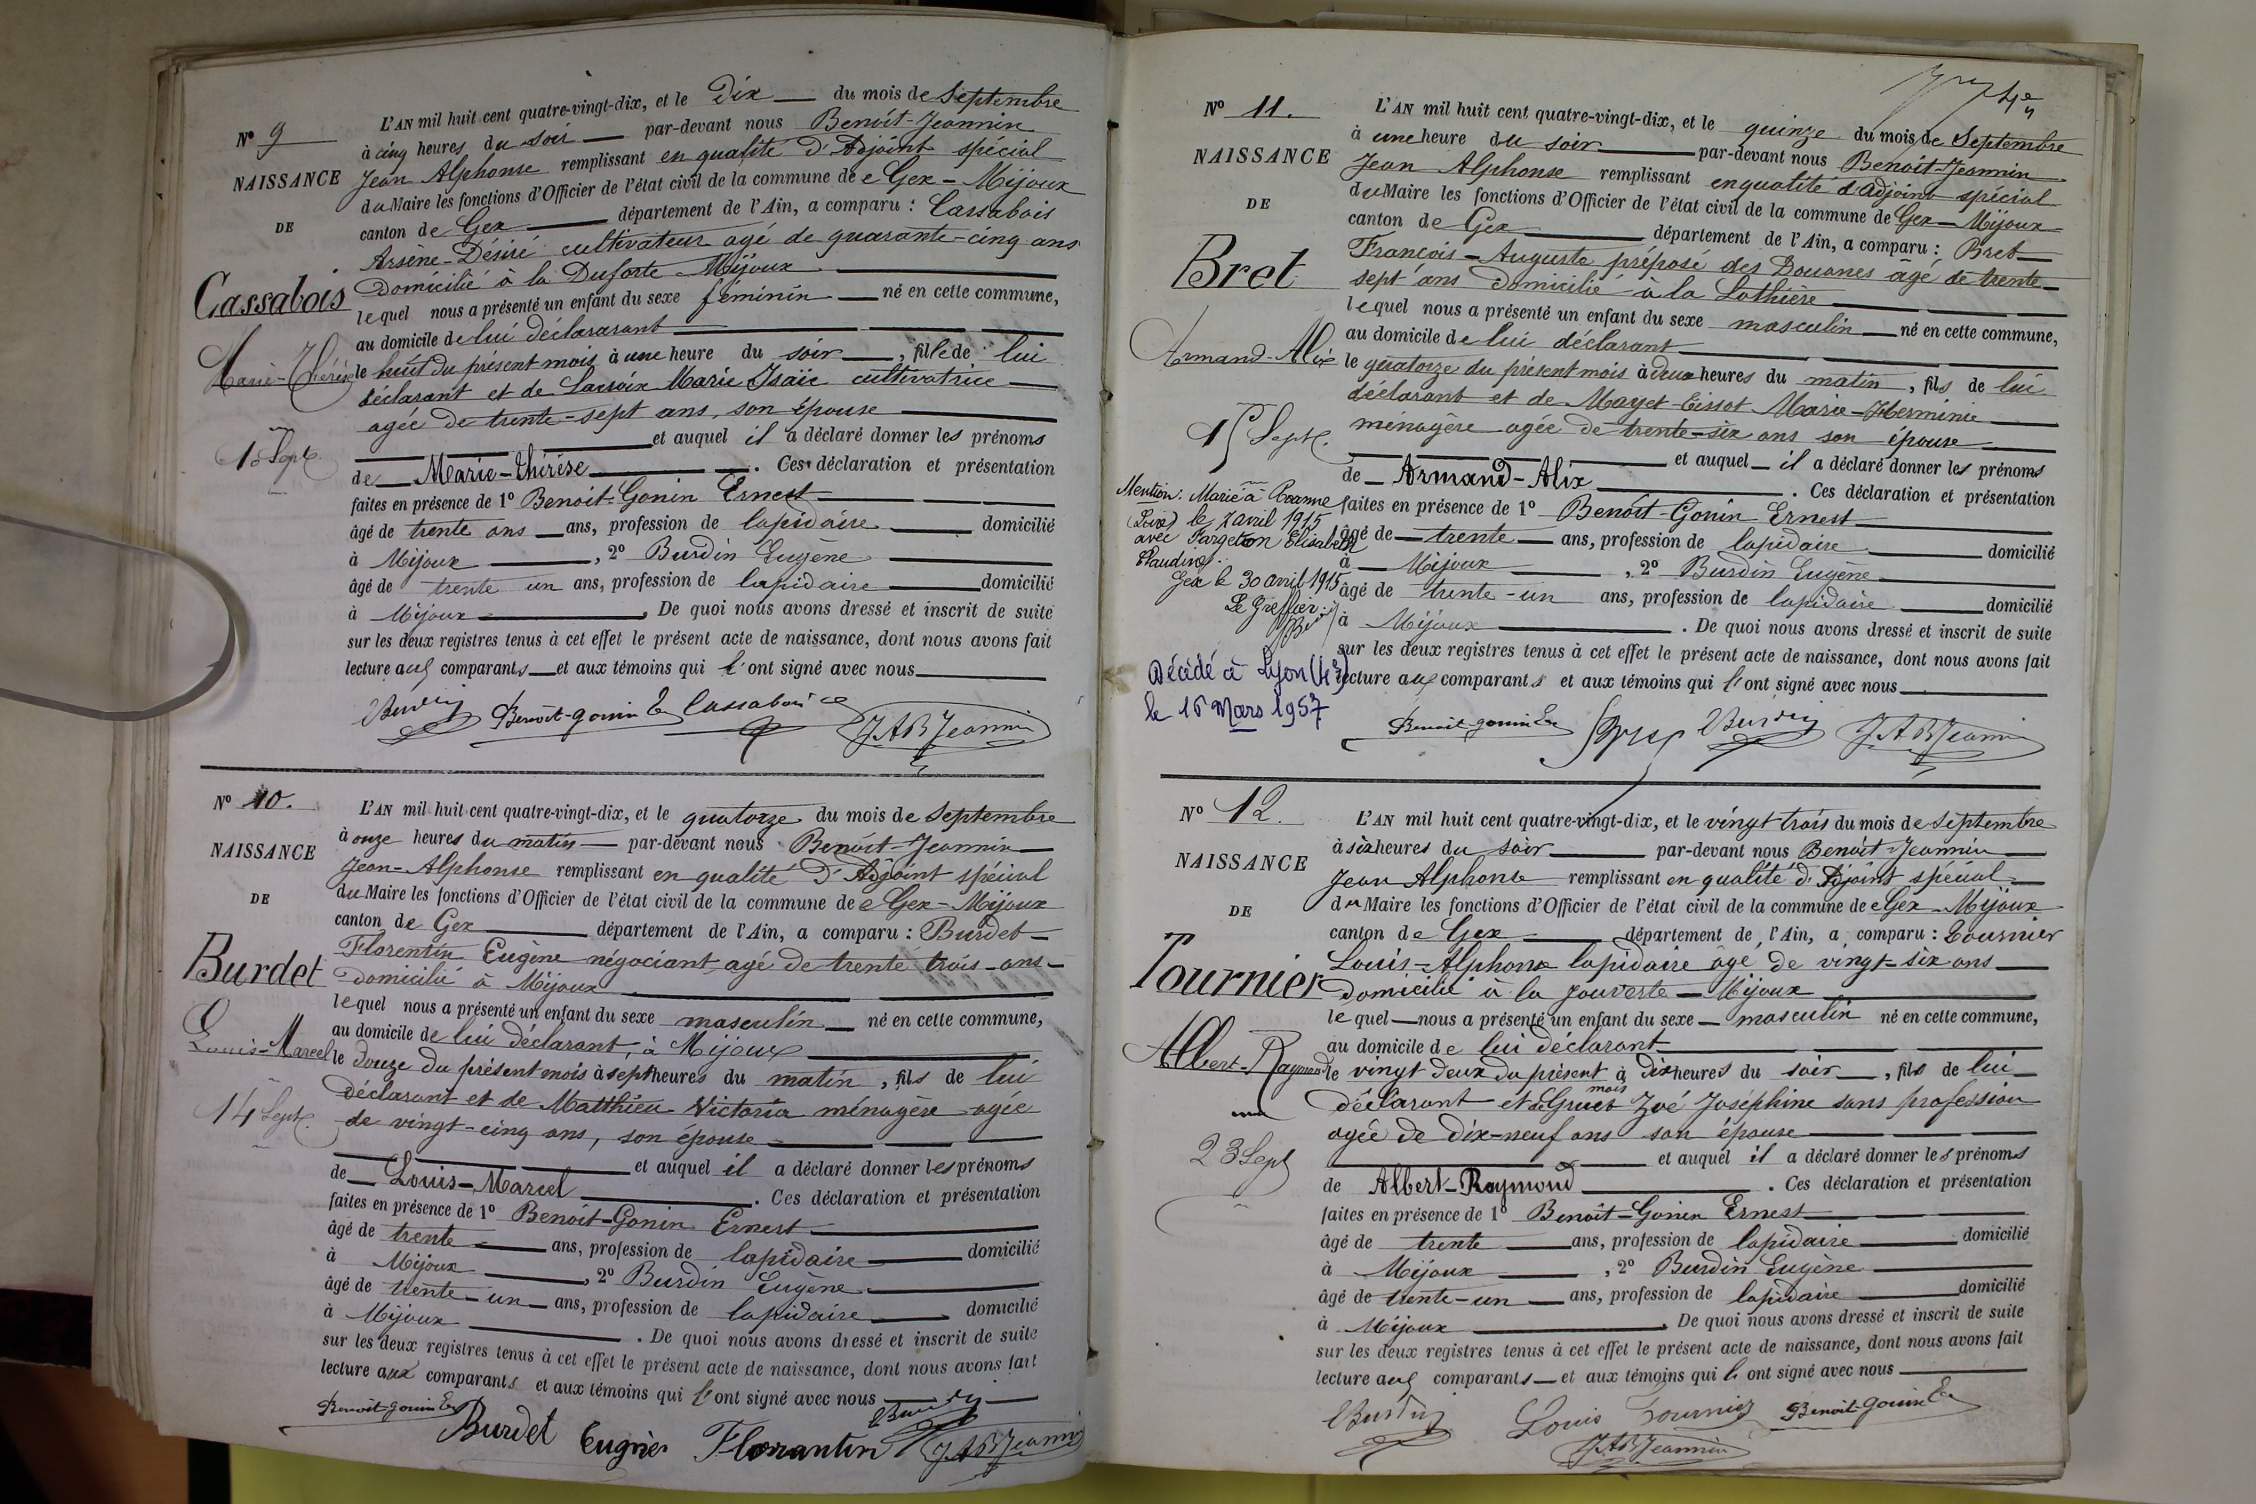 L'AN mil huit cent quatre-vingt-dix, et le Dix du mois de Septembre
Nº 9
à cinq heures du soir par-devant nous Benoît-Jeannin
NAISSANCE
Jean Alphonse remplissant en qualité d'Adjoint spécial
du Maire les fonctions d'Officier de l'état civil de la commune de Gex-Mijoux
DE
canton de Gex département de l'Ain, a comparu : Cassabois
Arsène-Désiré cultivateur agé de quarante-cinq ans
Cassabois
Domicilié à la Duforte Mijoux
lequel nous a présenté un enfant du sexe féminin né en cette commune,
au domicile de lui déclararant
Marie-Thérèse
le huit du présent mois à une heure du soir, fille de lui
déclarant et de Lacroix Marie Isaïe cultivatrice
agée de trente-sept ans, son épouse
10 Sept.
et auquel il a déclaré donner les prénoms
de Marie-Thérèse. Ces déclaration et présentation
faites en présence de 1º Benoit-Gonin Ernest
âgé de trente ans ans, profession de lapidaire domicilié
à Mijoux, 2º Burdin Eugène
âgé de trente un ans, profession de lapidaire domicilié
à Mijoux. De quoi nous avons dressé et inscrit de suite
sur les deux registres tenus à cet effet le présent acte de naissance, dont nous avons fait
lecture aux comparants et aux témoins qui l'ont signé avec nous
Burdin Benoit-gonin Er Cassabois JAB Jeannin
Nº 10.
L'AN mil huit cent quatre-vingt-dix, et le quatorze du mois de Septembre
à onze heures du matin par-devant nous Benoit-Jeannin
NAISSANCE
Jean-Alphonse remplissant en qualité d'Adjoint spécial
du Maire les fonctions d'Officier de l'état civil de la commune de Gex-Mijoux
DE
canton de Gex département de l'Ain, a comparu : Burdet
Florentin Eugène négociant agé de trente trois-ans
Burdet
domicilié à Mijoux
lequel nous a présenté un enfant du sexe masculin né en cette commune,
au domicile de lui déclarant, à Mijoux
Louis-Marcel
le douze du présent mois à sept heures du matin, fils de lui
déclarant et de Matthieu Victoria ménagère agée
14 Sept.
de vingt-cinq ans, son épouse
et auquel il a déclaré donner les prénoms
de Louis-Marcel. Ces déclaration et présentation
faites en présence de 1º Benoit-Gonin Ernest
âgé de trente ans, profession de lapidaire domicilié
à Mijoux, 2º Burdin Eugène
âgé de trente-un ans, profession de lapidaire domicilié
à Mijoux. De quoi nous avons dressé et inscrit de suite
sur les deux registres tenus à cet effet le présent acte de naissance, dont nous avons fait
lecture aux comparants et aux témoins qui l'ont signé avec nous
Benoit-gonin Er Burdet Eugnier Florantin Burdin JAB Jeannin
Nº 11.
L'AN mil huit cent quatre-vingt-dix, et le quinze du mois de Septembre
à une heure du soir par-devant nous Benoît-Jeannin
NAISSANCE
Jean Alphonse remplissant en qualité d'adjoint spécial
du Maire les fonctions d'Officier de l'état civil de la commune de Gex-Mijoux
DE
canton de Gex département de l'Ain, a comparu : Bret
François-Auguste préposé des Douanes âgé de trente
Bret
sept ans domicilié à la Lathière
lequel nous a présenté un enfant du sexe masculin né en cette commune,
au domicile de lui déclarant
Armand-Alix
le quatorze du présent mois à deux heures du matin, fils de lui
déclarant et de Mayet-Tissot Marie-Herminie
15 Sept.
ménagère agée de trente-six ans son épouse
et auquel il a déclaré donner les prénoms
de Armand-Alix. Ces déclaration et présentation
Mention: Marié à Roanne
(Loire) le 7 avril 1915
avec Fargeton Elisabeth
Claudine.
Gex le 30 avril 1915
Le Greffier:
faites en présence de 1º Benoît-Gonin Ernest
âgé de trente ans, profession de lapidaire domicilié
à Mijoux, 2º Burdin Eugène
âgé de trente-un ans, profession de lapidaire domicilié
à Mijoux. De quoi nous avons dressé et inscrit de suite
sur les deux registres tenus à cet effet le présent acte de naissance, dont nous avons fait
lecture aux comparants et aux témoins qui l'ont signé avec nous
Décédé à Lyon (4e)
le 16 Mars 1957
Benoit-gonin Er Burdin JAB Jeannin
Nº 12.
L'AN mil huit cent quatre-vingt-dix, et le vingt-trois du mois de Septembre
à six heures du soir par-devant nous Benoit-Jeannin
NAISSANCE
Jean Alphonse remplissant en qualité d'Adjoint spécial
du Maire les fonctions d'Officier de l'état civil de la commune de Gex-Mijoux
DE
canton de Gex département de l'Ain, a comparu : Tournier
Louis-Alphonse lapidaire âgé de vingt-six ans
Tournier
domicilié à la jouverte-Mijoux
lequel nous a présenté un enfant du sexe masculin né en cette commune,
au domicile de lui déclarant
Albert-Raymond
le vingt deux du présent mois à dix heures du soir, fils de lui
déclarant et de Gruet Zoé Joséphine sans profession
agée de dix-neuf ans son épouse
23 Sept
et auquel il a déclaré donner les prénoms
de Albert-Raymond. Ces déclaration et présentation
faites en présence de 1º Benoît-Gonin Ernest
âgé de trente ans, profession de lapidaire domicilié
à Mijoux, 2º Burdin Eugène
âgé de trente-un ans, profession de lapidaire domicilié
à Mijoux. De quoi nous avons dressé et inscrit de suite
sur les deux registres tenus à cet effet le présent acte de naissance, dont nous avons fait
lecture aux comparants et aux témoins qui l'ont signé avec nous
Burdin Louis Tournier Benoit-gonin Er
JAB Jeannin